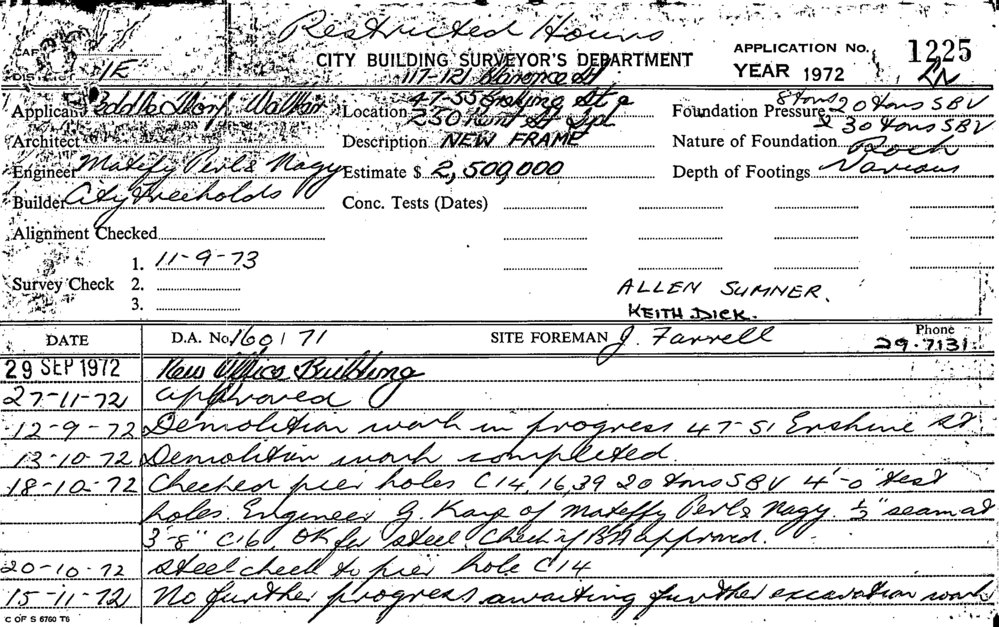 Restricted Hours
CITY BUILDING SURVEYOR'S DEPARTMENT
APPLICATION No. 1225
YEAR 1972 /2N
CAF
DISTRICT 1E
117-121 Clarence St
Applicant Peddle Thorp Walker
Location 47-55 Erskine St &
250 Kent St Syd
Foundation Pressure 8 tons 20 tons SBV
& 30 tons SBV
Architect
Description NEW FRAME
Nature of Foundation Rock
Engineer Mateffy Perl & Nagy
Estimate $ 2,500,000
Depth of Footings Various
Builder City Freeholds
Conc. Tests (Dates)
Alignment Checked
Survey Check
1. 11-9-73
2.
3.
ALLEN SUMNER.
KEITH DICK.
DATE D.A. No. 160/71 SITE FOREMAN J. Farrell Phone 29.7131
29 SEP 1972 New Office Building
27-11-72 approved
12-9-72 Demolition work in progress 47-51 Erskine St
13-10-72 Demolition work completed.
18-10-72 Checked pier holes C14,16,39 20 tons SBV 4'-0" test
holes. Engineer G. Kaye of Mateffy Perl & Nagy. ½" seam at
3'-8" C16. OK for steel. Check if BA approved.
20-10-72 Steel check to pier hole C14
15-11-72 No further progress awaiting further excavation work
C OF S 6760 T6